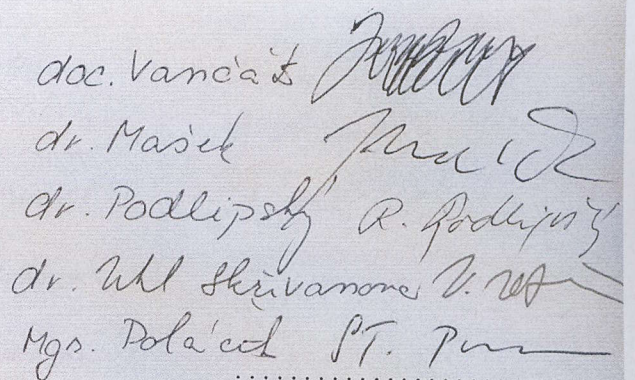 doc. Vančát
dr. Mašek
dr. Podlipský R. Podlipský
dr. Uhl Skřivanová
Mgr. Poláček ŠT.